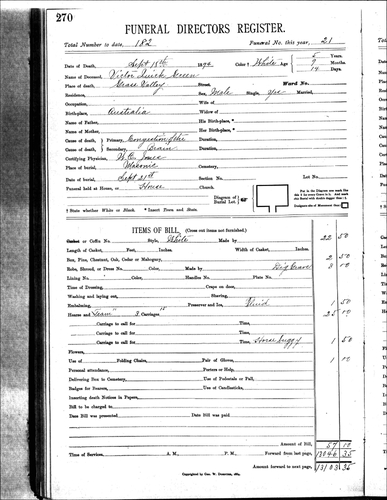 270
FUNERAL DIRECTORS REGISTER.
Total Number to date, 182 Funeral No. this year, 21
Date of Death, Sept 18th 1896 Color † White Age 5 Years
9 Months
14 Days
Name of Deceased, Victor Green
Place of death, Grass Valley Street, Ward No.
Residence, Sex, Male Single, yes Married,
Occupation, Wife of
Birth-place, Australia Widow of
Name of Father, His Birth-place, *
Name of Mother, Her Birth-place, *
Cause of death, Primary, Congestion of the Duration,
Cause of death, Secondary, Brain Duration,
Certifying Physician, W. C. Jones
Place of burial, Masonic Cemetery,
Date of burial, Sept 21st Section No. Lot No.
Funeral held at Home, or House Church
Diagram of Burial Lot
† State whether White or Black. * Insert Town and State.
ITEMS OF BILL, (Cross out items not furnished.)
Casket or Coffin No. Style, White Made by 22 50
Length of Casket, Feet, Inches. Width of Casket, Inches.
Box, Pine, Chestnut, Oak, Cedar or Mahogany, 2 50
Robe, Shroud, or Dress No. Color, Made by Dig Grave
Lining No. Color, Handles No. Plate No.
Time of Dressing, Crape on door,
Washing and laying out, Shaving,
Embalming, Preserver and Ice, Fluid 1 50
Hearse and "Team" 3 Carriages 25 00
Carriage to call for Time,
Carriage to call for Time, House buggy 1 50
Carriage to call for Time,
Flowers,
Use of Folding Chairs, Pair of Gloves, 1 00
Personal attendance, Pasture or Help.
Delivering Box to Cemetery, Use of Pedestals or Pall,
Badges for Bearers, Use of Candlesticks,
Inserting death Notices in Papers,
Bill to be charged to
Date Bill was presented Date Bill was paid
Amount of Bill, 57 10
Time of Services, A. M., P. M., Forward from last page, 13046 35
Amount forward to next page, 13103 35